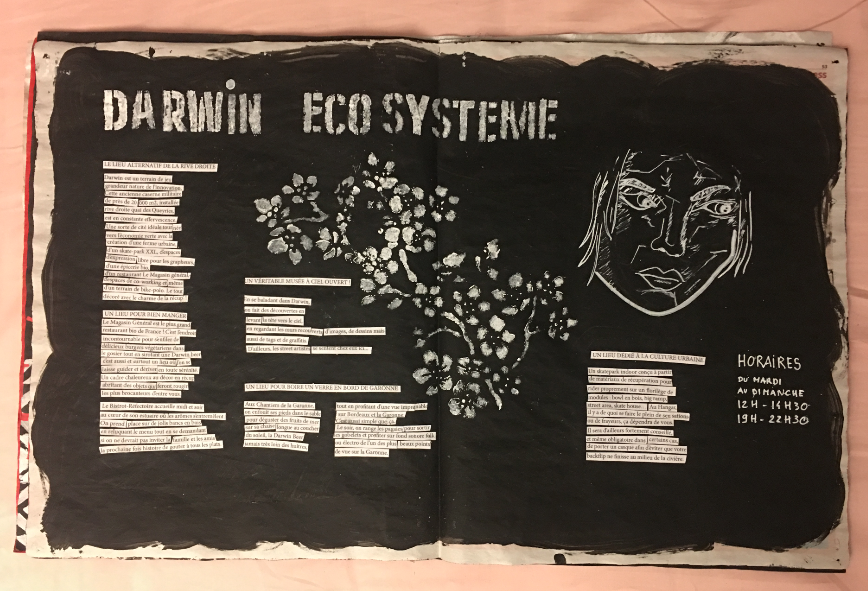 DARWiN ECO SYSTEME
LE LIEU ALTERNATIF DE LA RIVE DROITE
Darwin est un terrain de jeu
grandeur nature de l'innovation.
Cette ancienne caserne militaire
de près de 20 000 m2, installée
rive droite quai des Queyries,
est en constante effervescence.
Une sorte de cité idéale tournée
vers l'économie verte avec la
création d'une ferme urbaine,
d'un skate-park XXL, d'espaces
d'expression libre pour les grapheurs,
d'une épicerie bio,
d'un restaurant Le Magasin général,
d'espaces de co-working et même
d'un terrain de bike-polo. Le tout
décoré avec le charme de la récup'.
UN LIEU POUR BIEN MANGER
Le Magasin Général est le plus grand
restaurant bio de France ! C'est l'endroit
incontournable pour siroter de
délicieux burgers végétariens dans
le gosier tout en sirotant une Darwin beer
C'est aussi et surtout un lieu
laisse guider et
Un cadre chaleureux au décor en récup
abritant des objets feront rougir
les plus brocanteurs d'entre vous.
Le Bistrot-Réfectoire accueille midi et soir
au cœur de son estuaire où les arbres s'entremêlent
On prend place sur de jolis bancs en bois
en reluquant le menu tout en se demandant
si on ne devrait pas inviter la famille et les amis
la prochaine fois histoire de goûter à tous les plats.
UN VÉRITABLE MUSÉE À CIEL OUVERT !
Je se baladant dans Darwin,
on fait des découvertes en
levant la tête vers le ciel,
en regardant les murs recouverts d'images, de dessins mais
aussi de tags et de graffitis
D'ailleurs, les street artistes se sentent chez eux ici...
UN LIEU POUR BOIRE UN VERRE EN BORD DE GARONNE
Aux Chantiers de la Garonne,
on enfouit ses pieds dans le sable
pour déguster des fruits de mer
sur sa chaise longue au coucher
du soleil, la Darwin Beer
jamais très loin des huîtres,
tout en profitant d'une vue imprenable
sur Bordeaux et la Garonne.
C'est aussi simple que ça.
Le soir, on range les pagaies pour sortir
les gobelets et profiter sur fond sonore folk
ou électro de l'un des plus beaux points
de vue sur la Garonne.
UN LIEU DÉDIÉ À LA CULTURE URBAINE
Un skatepark indoor conçu à partir
de matériaux de récupération pour
rider librement sur un florilège de
modules : bowl en bois, big rampe,
street area, skate house... Au Hangar
il y a de quoi se faire le plein de sensations
ou de travers, ça dépendra de vous.
Il sera d'ailleurs fortement conseillé,
et même obligatoire dans certains cas,
de porter un casque afin d'éviter que votre
backflip ne finisse au milieu de la civière.
HORAIRES
DU MARDI
AU DIMANCHE
12H - 14H30
19H - 22H30